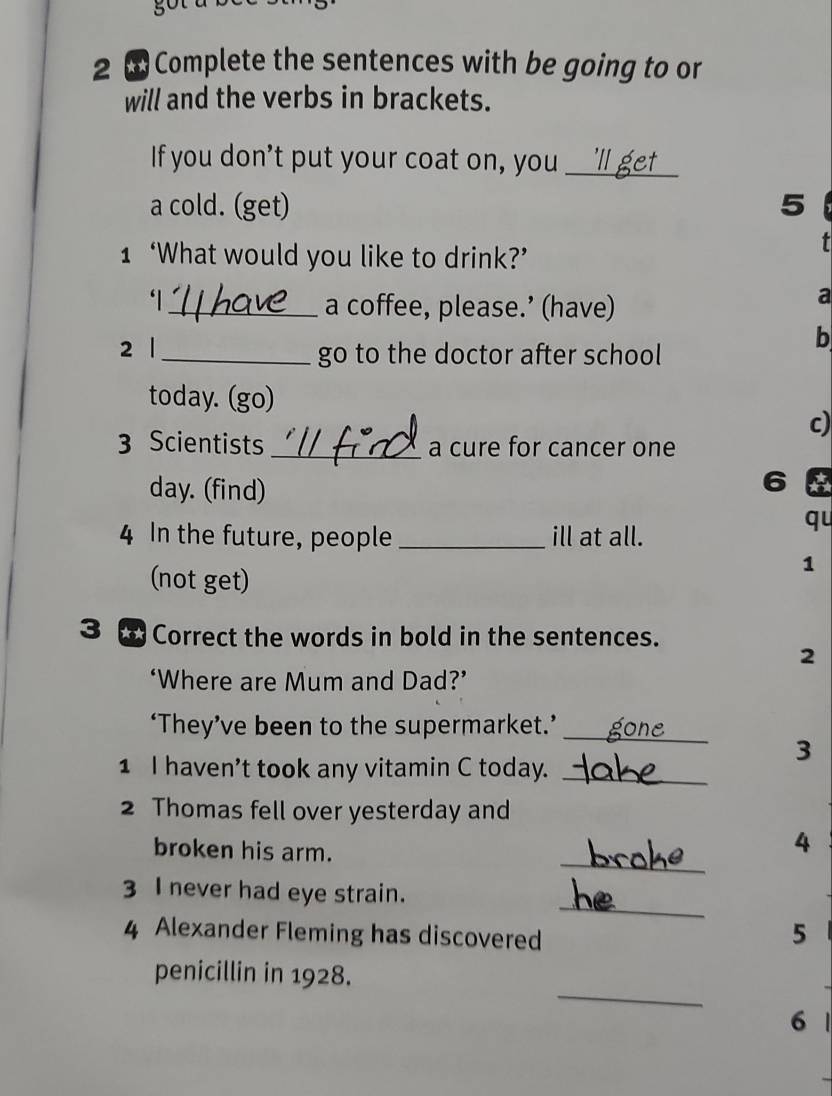 2 ** Complete the sentences with be going to or
will and the verbs in brackets.
If you don't put your coat on, you 'll get
a cold. (get)
1 ‘What would you like to drink?’
‘I 'll have a coffee, please.’ (have)
2 I ____________ go to the doctor after school
today. (go)
3 Scientists 'll find a cure for cancer one
day. (find)
4 In the future, people ____________ ill at all.
(not get)
3 ** Correct the words in bold in the sentences.
‘Where are Mum and Dad?’
‘They've been to the supermarket.’ gone
1 I haven't took any vitamin C today. take
2 Thomas fell over yesterday and
broken his arm. broke
3 I never had eye strain. he
4 Alexander Fleming has discovered
penicillin in 1928. ____________
5
t
a
b
c)
6
qu
1
2
3
4
5
6